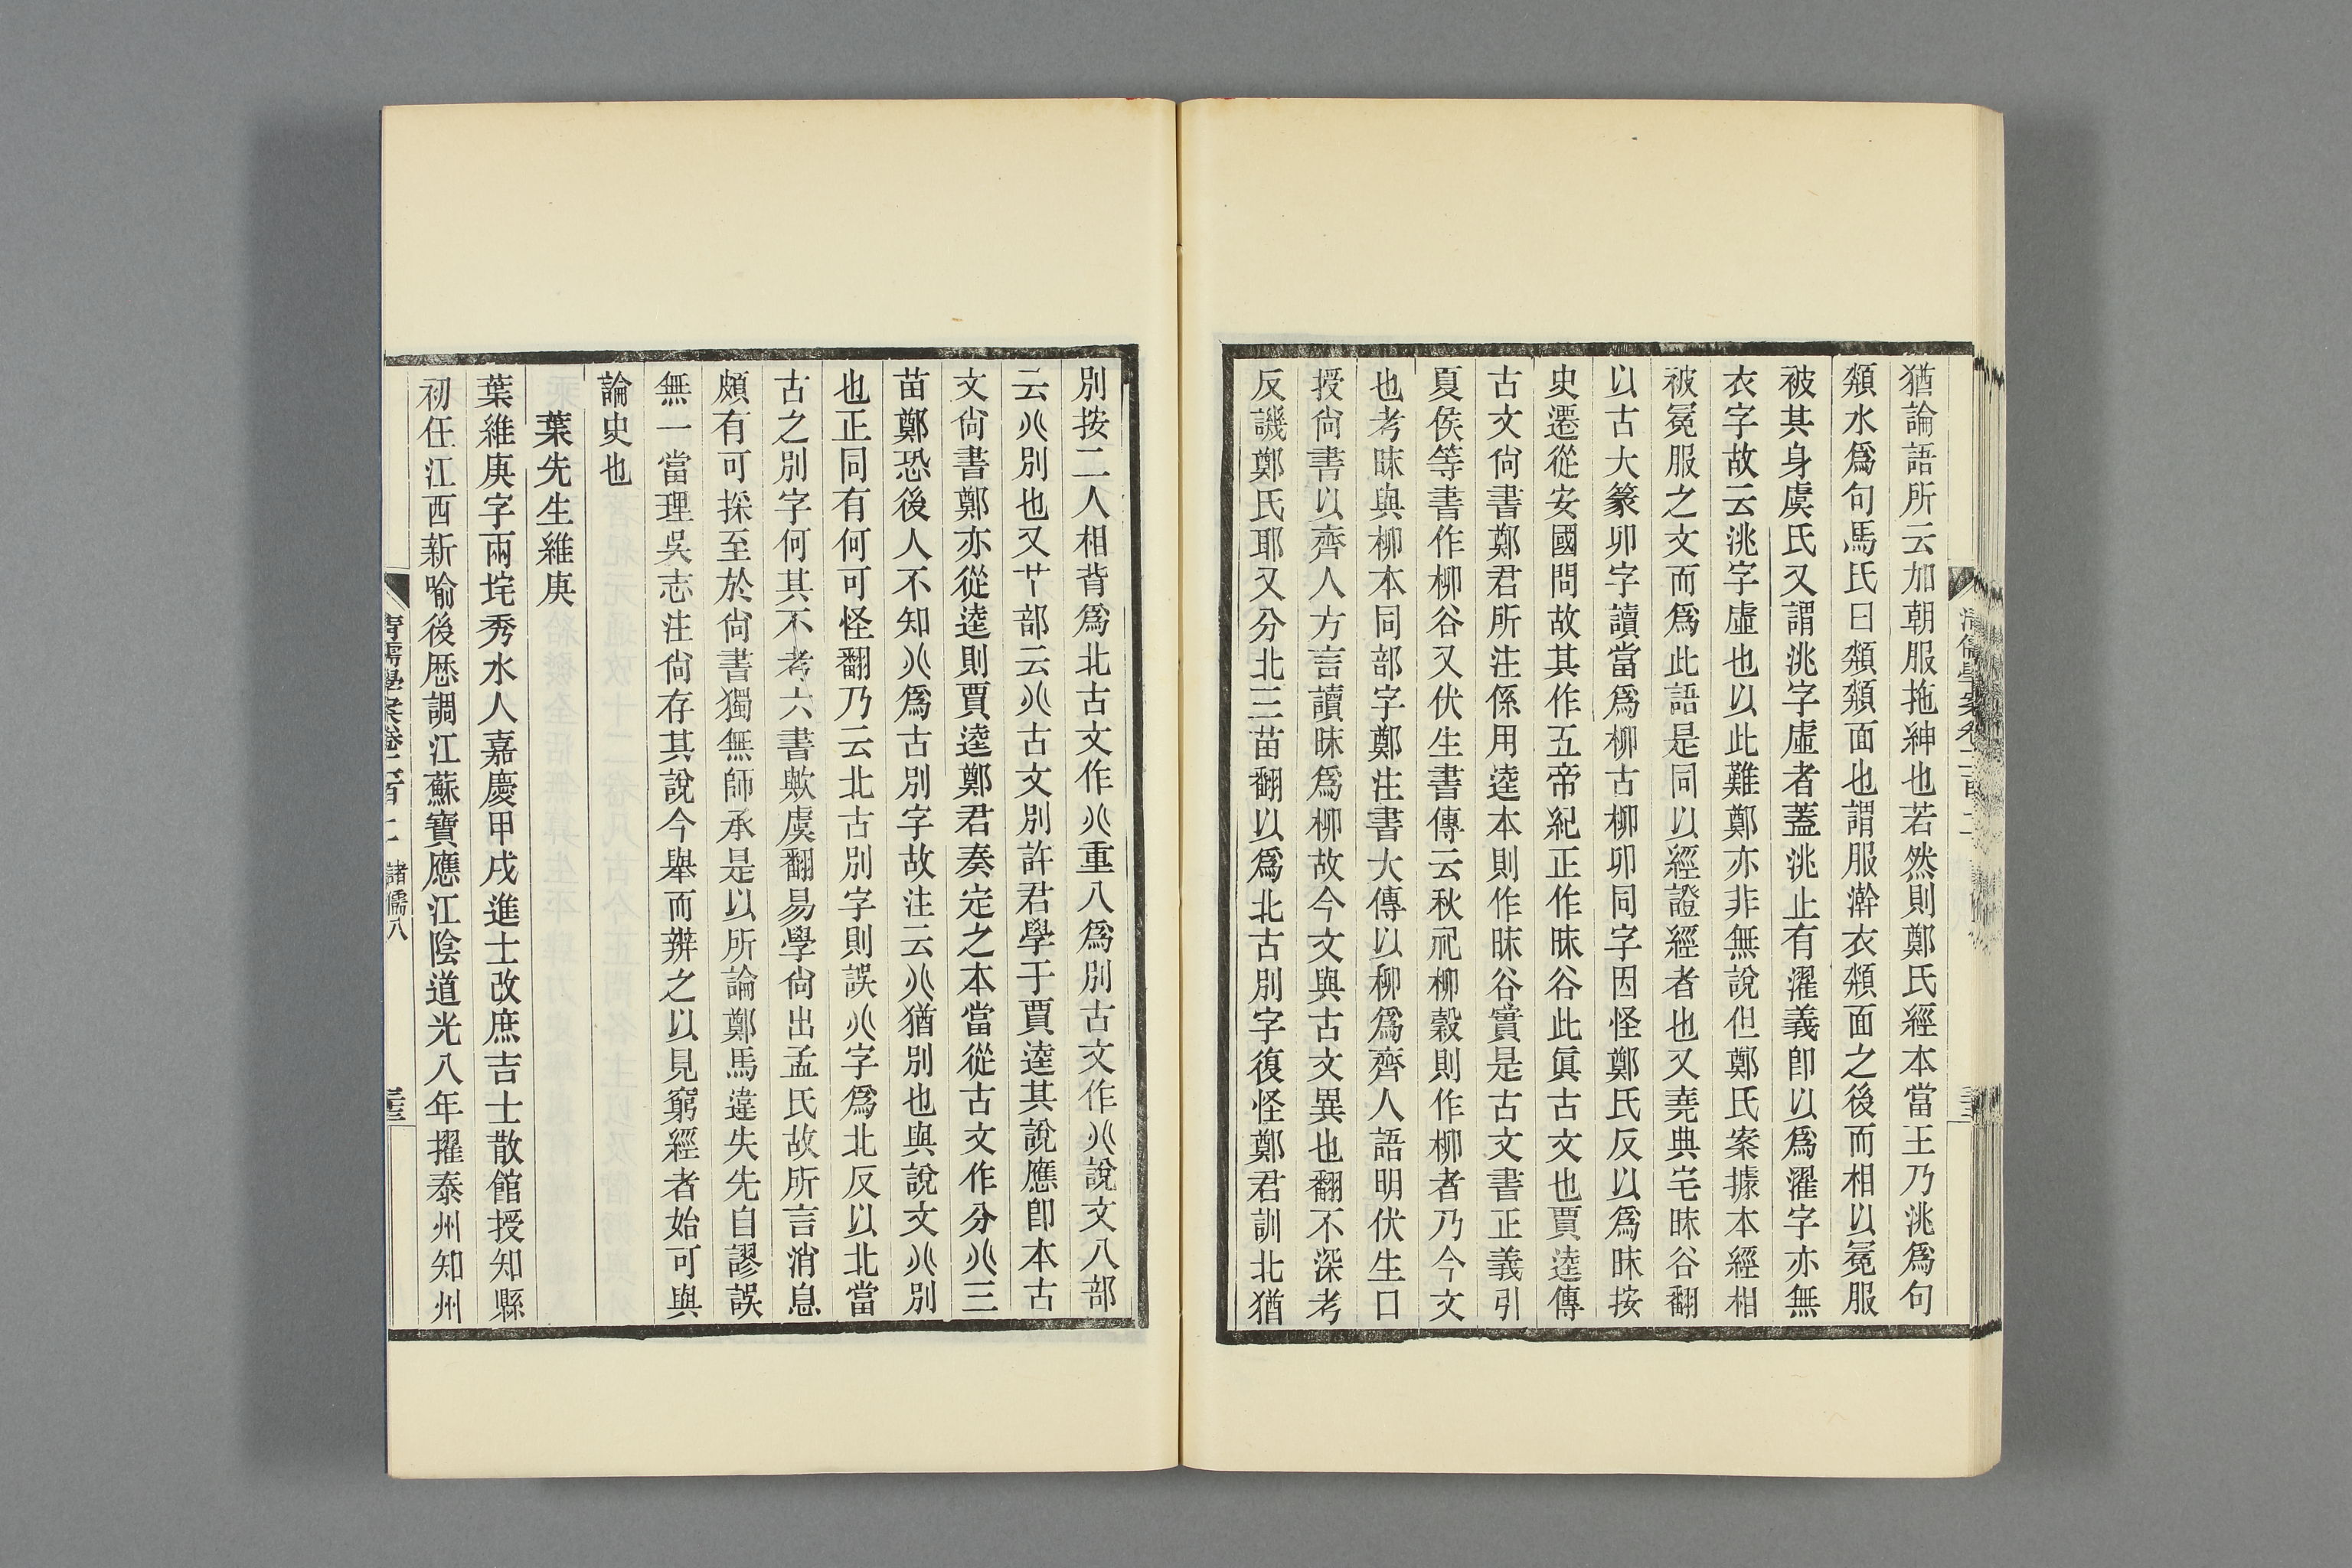 猶論語所云加朝服拖紳也若然則鄭氏經本當王乃洮爲句
頮水爲句馬氏曰頮頮面也謂服澣衣頮面之後而相以冕服
被其身虞氏又謂洮字虛者蓋洮止有濯義卽以爲濯字亦無
衣字故云洮字虛也以此難鄭亦非無說但鄭氏案據本經相
被冕服之文而爲此語是同以經證經者也又堯典宅昧谷翻
以古大篆卯字讀當爲柳古柳卯同字因怪鄭氏反以爲昧按
史遷從安國問故其作五帝紀正作昧谷此眞古文也賈逵傳
古文尙書鄭君所注係用逵本則作昧谷實是古文書正義引
夏侯等書作柳谷又伏生書傳云秋祀柳穀則作柳者乃今文
也考昧與柳本同部字鄭注書大傳以柳爲齊人語明伏生口
授尙書以齊人方言讀昧爲柳故今文與古文異也翻不深考
反譏鄭氏耶又分北三苗翻以爲北古別字復怪鄭君訓北猶
別按二人相背爲北古文作㸚重八爲別古文作㸚說文八部
云八別也又𠁥部云八古文別許君學于賈逵其說應卽本古
文尙書鄭亦從逵則賈逵鄭君奏定之本當從古文作分八三
苗鄭恐後人不知八爲古別字故注云八猶別也與說文八別
也正同有何可怪翻乃云北古別字則誤八字爲北反以北當
古之別字何其不考六書歟虞翻易學尙出孟氏故所言消息
頗有可採至於尙書獨無師承是以所論鄭馬違失先自謬誤
無一當理吳志注尙存其說今舉而辨之以見窮經者始可與
論史也
葉先生維庚
葉維庚字兩垞秀水人嘉慶甲戌進士改庶吉士散館授知縣
初任江西新喻後歷調江蘇寶應江陰道光八年擢泰州知州
清儒學案卷二百二 諸儒八